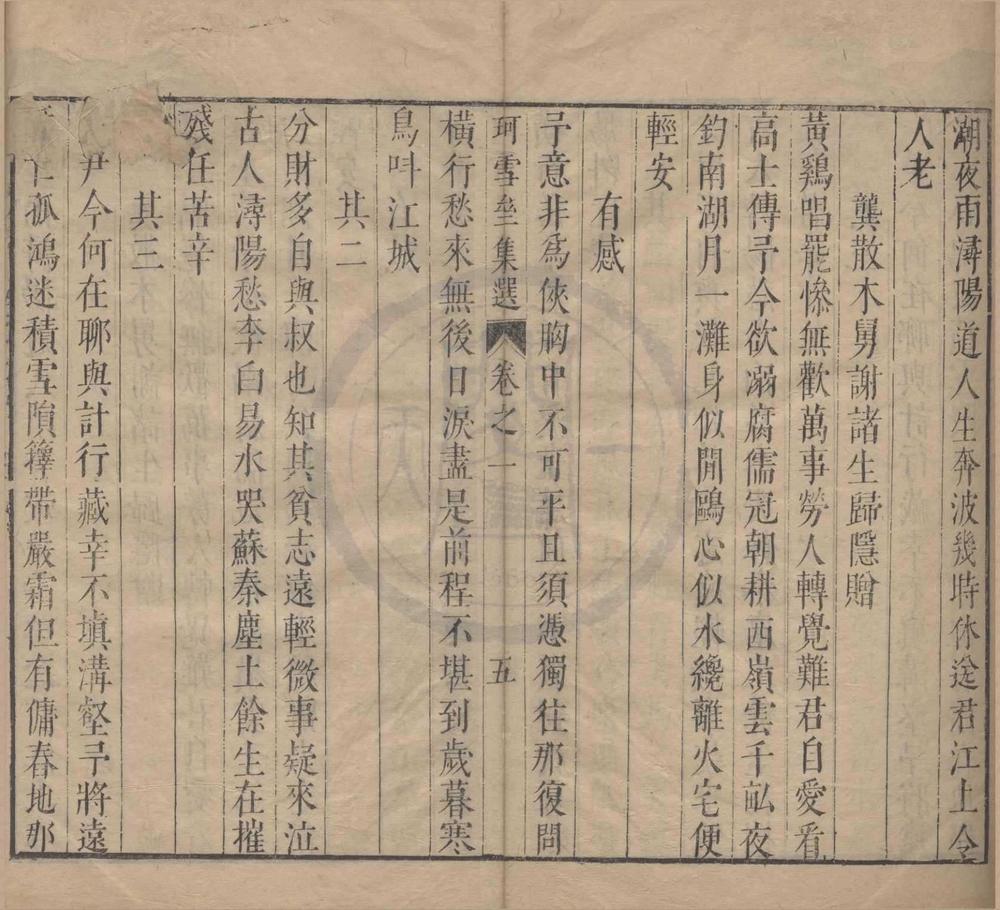 潮夜雨潯陽道人生奔波幾時休送君江上令
人老
龔散木舅謝諸生歸隱贈
黃鷄唱罷慘無歡萬事勞人轉覺難君自愛看
高士傳予今欲溺腐儒冠朝耕西嶺雲千畝夜
釣南湖月一灘身似閒鷗心似水纔離火宅便
輕安
有感
予意非為俠胸中不可平且須憑獨往那復問
珂雪垒集選 卷之一 五
橫行愁來無後日淚盡是前程不堪到歲暮寒
鳥呌江城
其二
分財多自與叔也知其貧志遠輕微事疑來泣
古人潯陽愁李白易水哭蘇秦塵土餘生在摧
殘任苦辛
其三
尹今何在聊與計行藏幸不塡溝壑予將遠
仁孤鴻迷積雪隕籜帶嚴霜但有傭舂地那